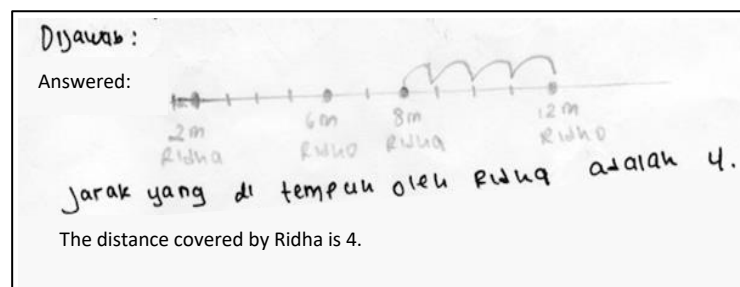 Dijawab :
Answered:
2m 6m 8m 12m
Ridha Ridho Ridha Ridho
Jarak yang di tempuh oleh Ridha adalah 4.
The distance covered by Ridha is 4.